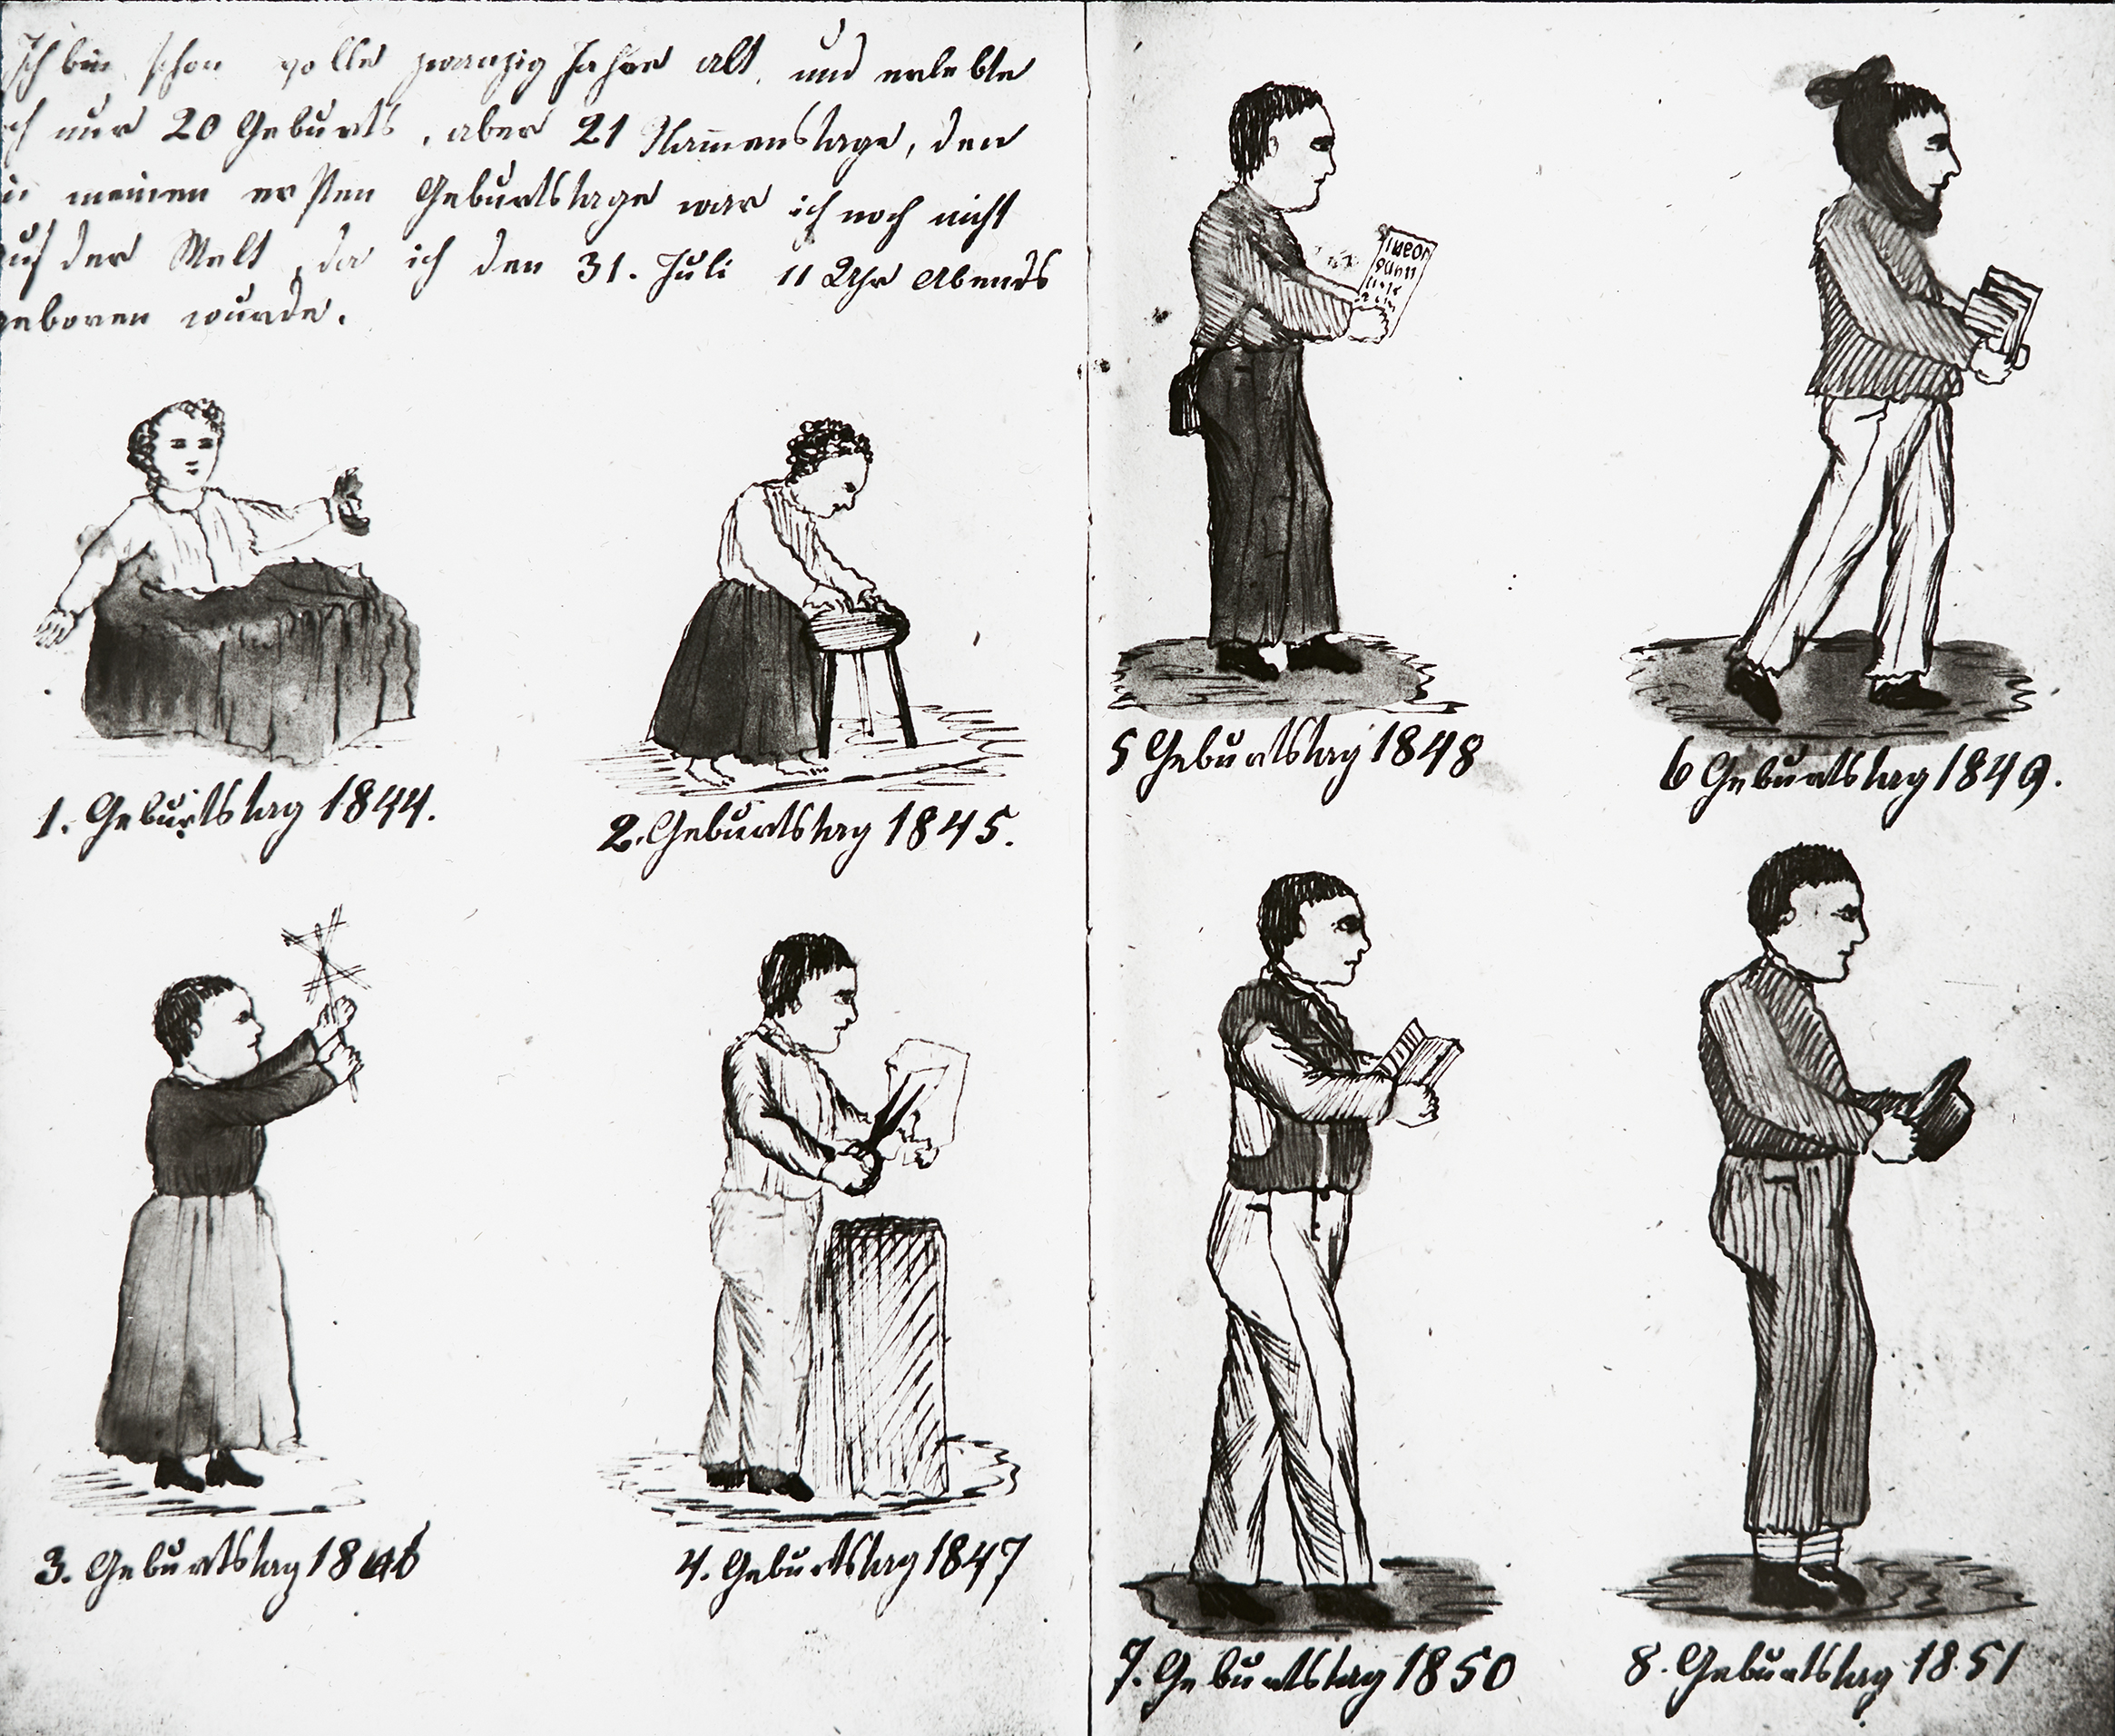 Ich bin schon volle zwanzig Jahre alt, und erlebte
ich nur 20 Geburts, aber 21 Namenstage, den
meinen ersten Geburtstage war ich noch nicht
auf der Welt, da ich den 31. Juli 11 Uhr Abends
geboren wurde.
1. Geburtstag 1844.
2. Geburtstag 1845.
3. Geburtstag 1846
4. Geburtstag 1847
5 Geburtstag 1848
6 Geburtstag 1849.
7. Geburtstag 1850
8. Geburtstag 1851